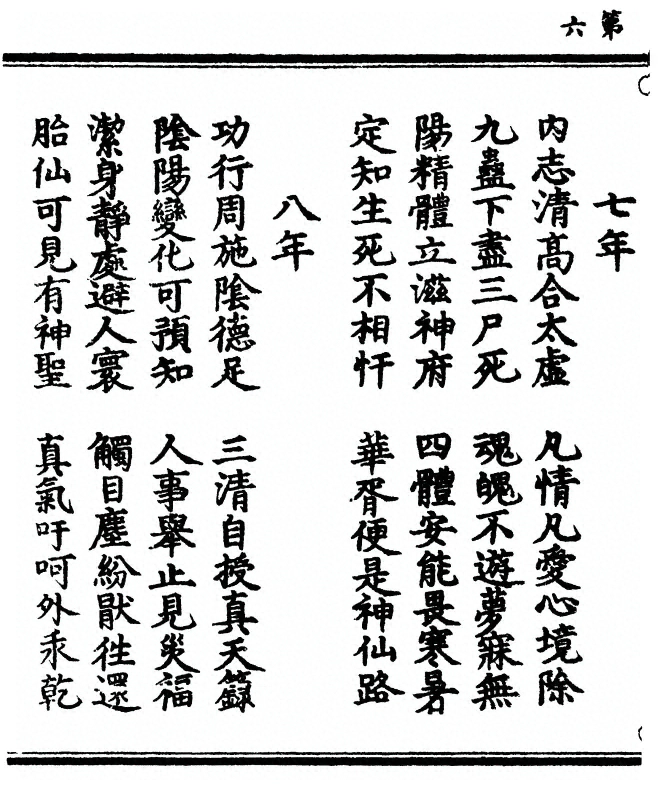 第六
七年
内志清高合太虛　凡情凡愛心境除
九蠱下盡三尸死　魂魄不遊夢寐無
陽精體立滋神府　四體安能畏寒暑
定知生死不相忓　華胥便是神仙路
八年
功行周施陰德足　三清自授真天籙
陰陽變化可預知　人事舉止見災福
潔身靜處避人寰　觸目塵紛猒徃還
胎仙可見有神聖　真氣吁呵外汞乾